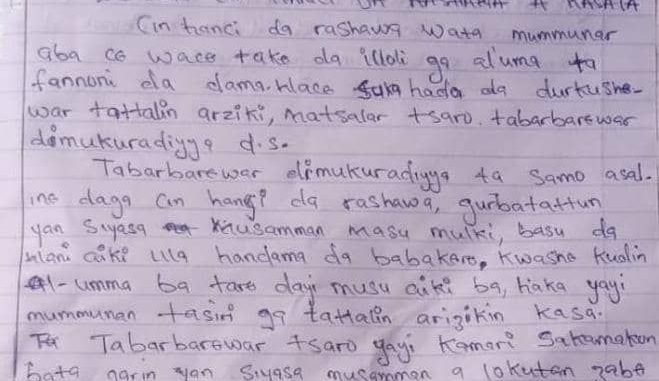 Cin hanci da rashawa wata mummunar
aba ce wace take da illoli ga al'uma ta
fannoni da dama. Wace sun hada da durkushe-
war tattalin arziki, matsalar tsaro. tabarbarewar
dimukuradiyya d.s.
Tabarbarewar dimukuradiyya ta samo asal-
ine daga cin hanci da rashawa, gurbatattun
yan siyasa Kausamman masu mulki, basu da
wani aiki illa handama da babakere, Kwashe Kudin
al-umma ba tare dayi musu aiki ba, haka yayi
mummunan tasiri ga tattalin arizikin Kasa.
Tabarbarewar tsaro yayi Kamari Sakamakon
bata garin yan Siyasa musamman a lokutan zabe